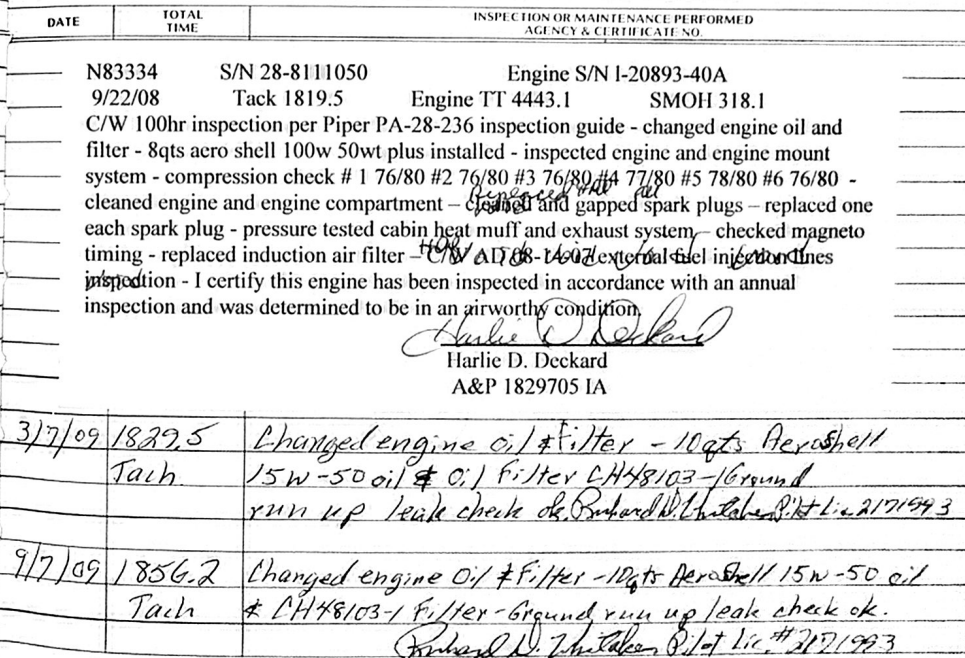 DATE
TOTAL TIME
INSPECTION OR MAINTENANCE PERFORMED
AGENCY & CERTIFICATE NO.
N83334 S/N 28-8111050 Engine S/N l-20893-40A
9/22/08 Tack 1819.5 Engine TT 4443.1 SMOH 318.1
C/W 100hr inspection per Piper PA-28-236 inspection guide - changed engine oil and
filter - 8qts aero shell 100w 50wt plus installed - inspected engine and engine mount
system - compression check # 1 76/80 #2 76/80 #3 76/80 #4 77/80 #5 78/80 #6 76/80 -
cleaned engine and engine compartment – cleaned and gapped spark plugs – replaced one
each spark plug - pressure tested cabin heat muff and exhaust system – checked magneto
timing - replaced induction air filter – C/W AD 08-14-07 external fuel injection lines
inspection - I certify this engine has been inspected in accordance with an annual
inspection and was determined to be in an airworthy condition.
Harlie D Deckard
Harlie D. Deckard
A&P 1829705 IA
3/7/09 1829.5 Changed engine oil & Filter - 10qts AeroShell
Tach 15w-50 oil & Oil Filter CH48103-1 Ground
run up leak check ok. Richard D. Whitaker Pilot Lic 2171993
9/7/09 1856.2 Changed engine Oil & Filter - 10qts AeroShell 15w-50 oil
Tach & CH48103-1 Filter - Ground run up leak check ok.
Richard D. Whitaker Pilot Lic. # 2171993